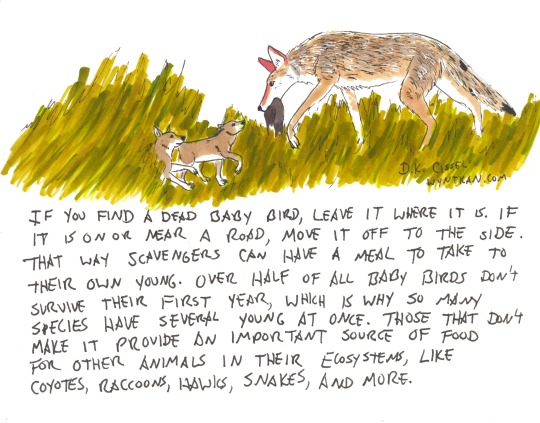 D.K. CISSEL
WYNTKAN.COM
IF YOU FIND A DEAD BABY BIRD, LEAVE IT WHERE IT IS. IF
IT IS ON OR NEAR A ROAD, MOVE IT OFF TO THE SIDE.
THAT WAY SCAVENGERS CAN HAVE A MEAL TO TAKE TO
THEIR OWN YOUNG. OVER HALF OF ALL BABY BIRDS DON'T
SURVIVE THEIR FIRST YEAR, WHICH IS WHY SO MANY
SPECIES HAVE SEVERAL YOUNG AT ONCE. THOSE THAT DON'T
MAKE IT PROVIDE AN IMPORTANT SOURCE OF FOOD
FOR OTHER ANIMALS IN THEIR ECOSYSTEMS, LIKE
COYOTES, RACCOONS, HAWKS, SNAKES, AND MORE.